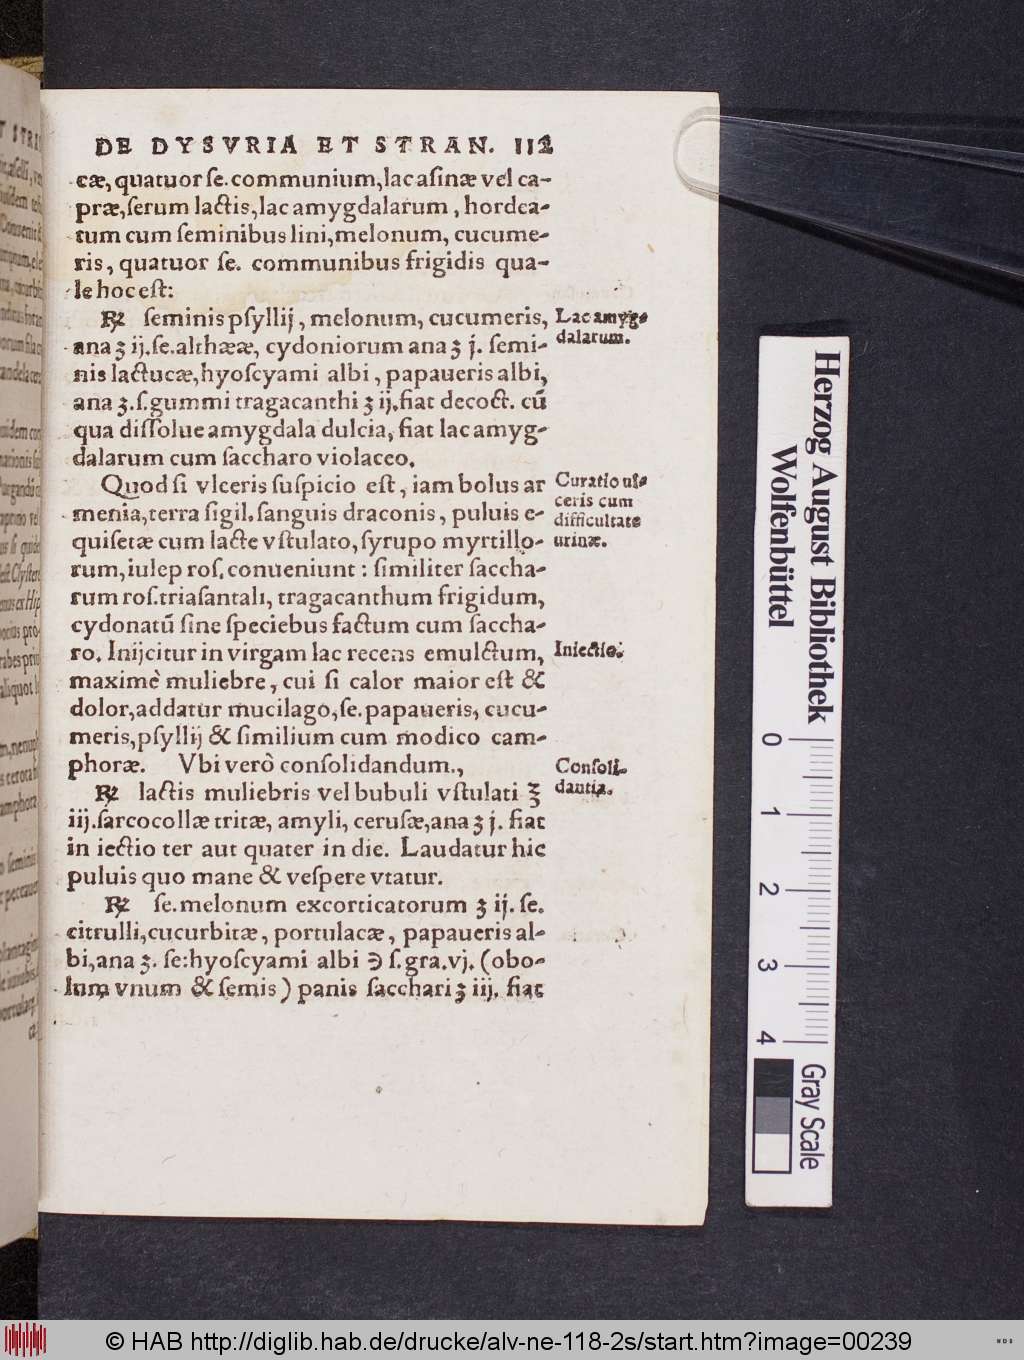 DE DYSVRIA ET STRAN. 112
cæ, quatuor ſe. communium, lac aſinæ vel ca-
præ, ſerum lactis, lac amygdalarum, hordea-
tum cum ſeminibus lini, melonum, cucume-
ris, quatuor ſe. communibus frigidis qua-
le hoc eſt:
℞ ſeminis pſyllij, melonum, cucumeris,
ana ʒ ij. ſe. althææ, cydoniorum ana ʒ j. ſemi-
nis lactucæ, hyoſcyami albi, papaueris albi,
ana ʒ. ſ. gummi tragacanthi ʒ ij. fiat decoct. cũ
qua diſſolue amygdala dulcia, fiat lac amyg-
dalarum cum ſaccharo violaceo.
Lac amyg-
dalarum.
Quod ſi vlceris ſuſpicio eſt, iam bolus ar
menia, terra ſigil. ſanguis draconis, puluis e-
quiſetæ cum lacte vſtulato, ſyrupo myrtillo-
rum, iulep roſ. conueniunt: ſimiliter ſaccha-
rum roſ. triaſantali, tragacanthum frigidum,
cydonatũ ſine ſpeciebus factum cum ſaccha-
ro. Inijcitur in virgam lac recens emulctum,
maximè muliebre, cui ſi calor maior eſt &
dolor, addatur mucilago, ſe. papaueris, cucu-
meris, pſyllij & ſimilium cum modico cam-
phoræ. Vbi verò conſolidandum.,
Curatio ul-
ceris cum
difficultate
urinæ.
Iniectio.
Conſoli-
dantia.
℞ lactis muliebris vel bubuli vſtulati ℥
iij. ſarcocollæ tritæ, amyli, ceruſæ, ana ʒ j. fiat
in iectio ter aut quater in die. Laudatur hic
puluis quo mane & veſpere vtatur.
℞ ſe. melonum excorticatorum ʒ ij. ſe.
citrulli, cucurbitæ, portulacæ, papaueris al-
bi, ana ʒ. ſe: hyoſcyami albi ℈ ſ. gra. vj. (obo-
lum vnum & ſemis) panis ſacchari ʒ iij. fiat
Herzog August Bibliothek
Wolfenbüttel
0 1 2 3 4
Gray Scale
© HAB http://diglib.hab.de/drucke/alv-ne-118-2s/start.htm?image=00239